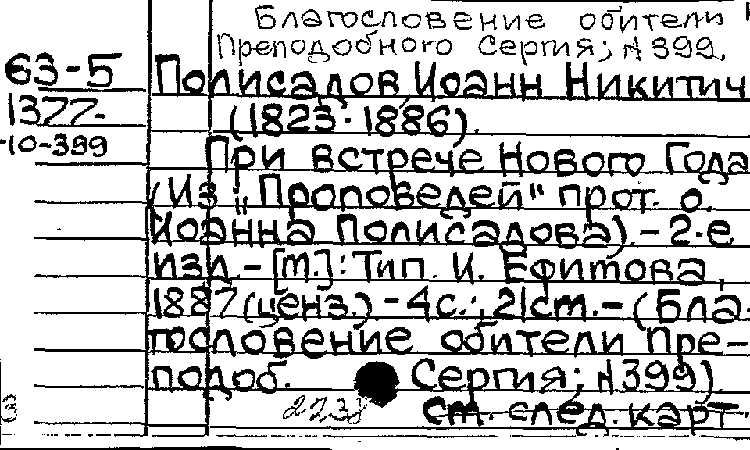 Благословение обители
Преподобного Сергия; № 399.
63-5
1377-
-10-399
Полисадов Иоанн Никитич
(1823-1886).
При встрече Нового Года
(Из "Проповедей" прот. о.
Иоанна Полисадова). - 2-е
изд. - [М.]: Тип. И. Ефимова,
1887 (ценз.). - 4с.; 21см. - (Бла-
гословение обители Пре-
подоб. Сергия; № 399)
2238
см. след. карт.